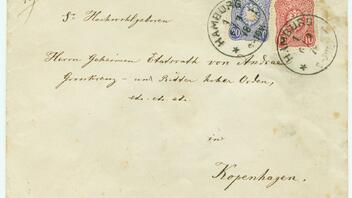 HAMBURG
HAMBURG
Sr Hochwohlgeboren
Herrn Geheimen Etatsrath von Andrae
Grosskreuz - und Ritter hoher Orden,
etc. etc. etc.
in
Kopenhagen.